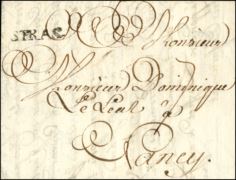 STRAS
Monsieur
Monsieur Dominique
à
Nancy.